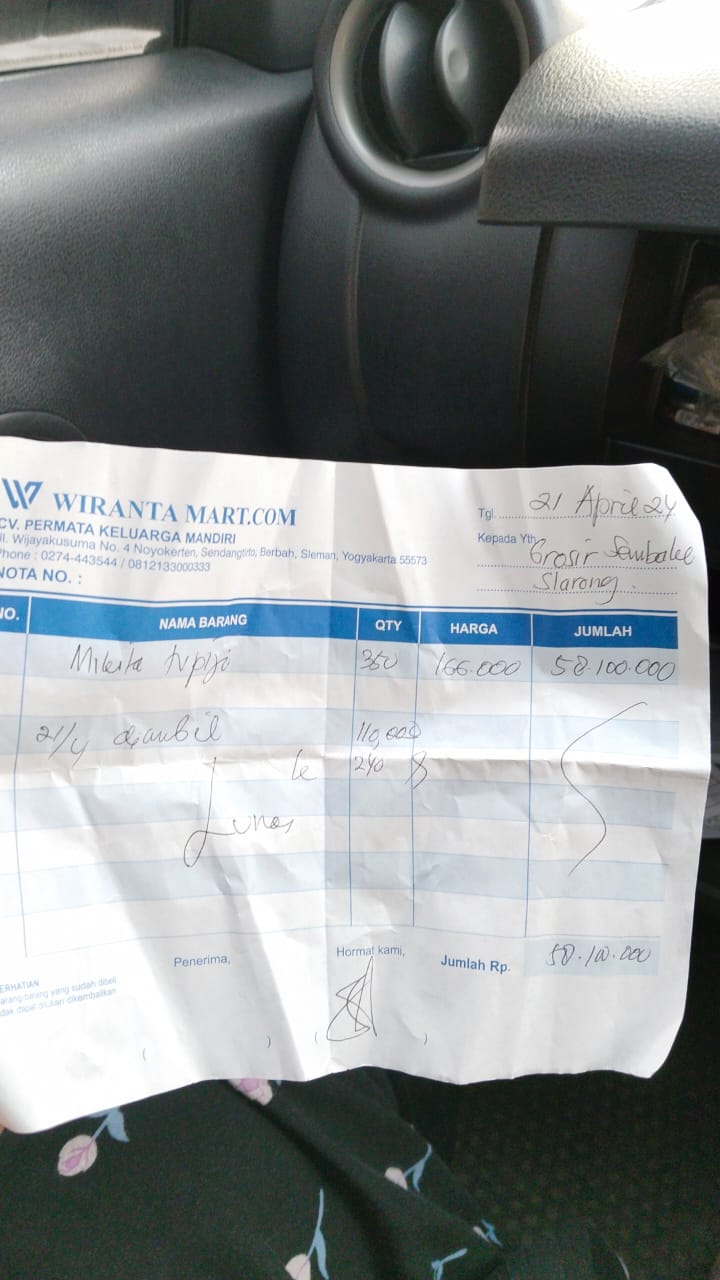 W WIRANTA MART.COM
CV. PERMATA KELUARGA MANDIRI
Jl. Wijayakusuma No. 4 Noyokerten, Sendangtirto, Berbah, Sleman, Yogyakarta 55573
Phone : 0274-443544 / 0812133000333
NOTA NO. :
Tgl. 21 April 24
Kepada Yth. Grosir Sembako
Slarong.
NO. NAMA BARANG QTY HARGA JUMLAH
350 166.000 58.100.000
21/4 diambil 110,000
240
Lunas
Penerima, Hormat kami, Jumlah Rp. 58.100.000
PERHATIAN
Barang-barang yang sudah dibeli
tidak dapat ditukar/dikembalikan
( ) ( )